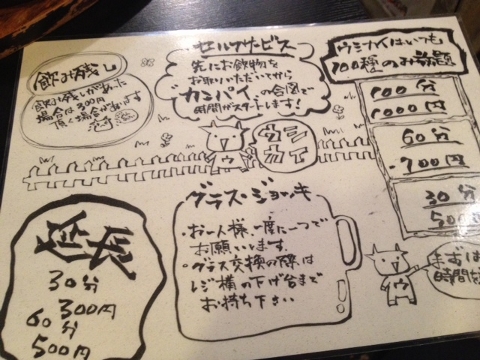 飲み残し
飲み残しがあった
場合は300円
頂く場合があります
セルフサービス
先にお飲物を
お取りいただいてから
"カンパイ"の合図で
時間がスタートします!
ウシカイはいつも
100種のみ放題
100分
1000円
60分
700円
30分
500
ウシ
カイ
ウ
グラス・ジョッキ
・お一人様一度に一つで
お願いします。
・グラス交換の際は
レジ横の下げ台まで
お持ち下さい
延長
30分
300円
60分
500円
まずは
時間
ウ